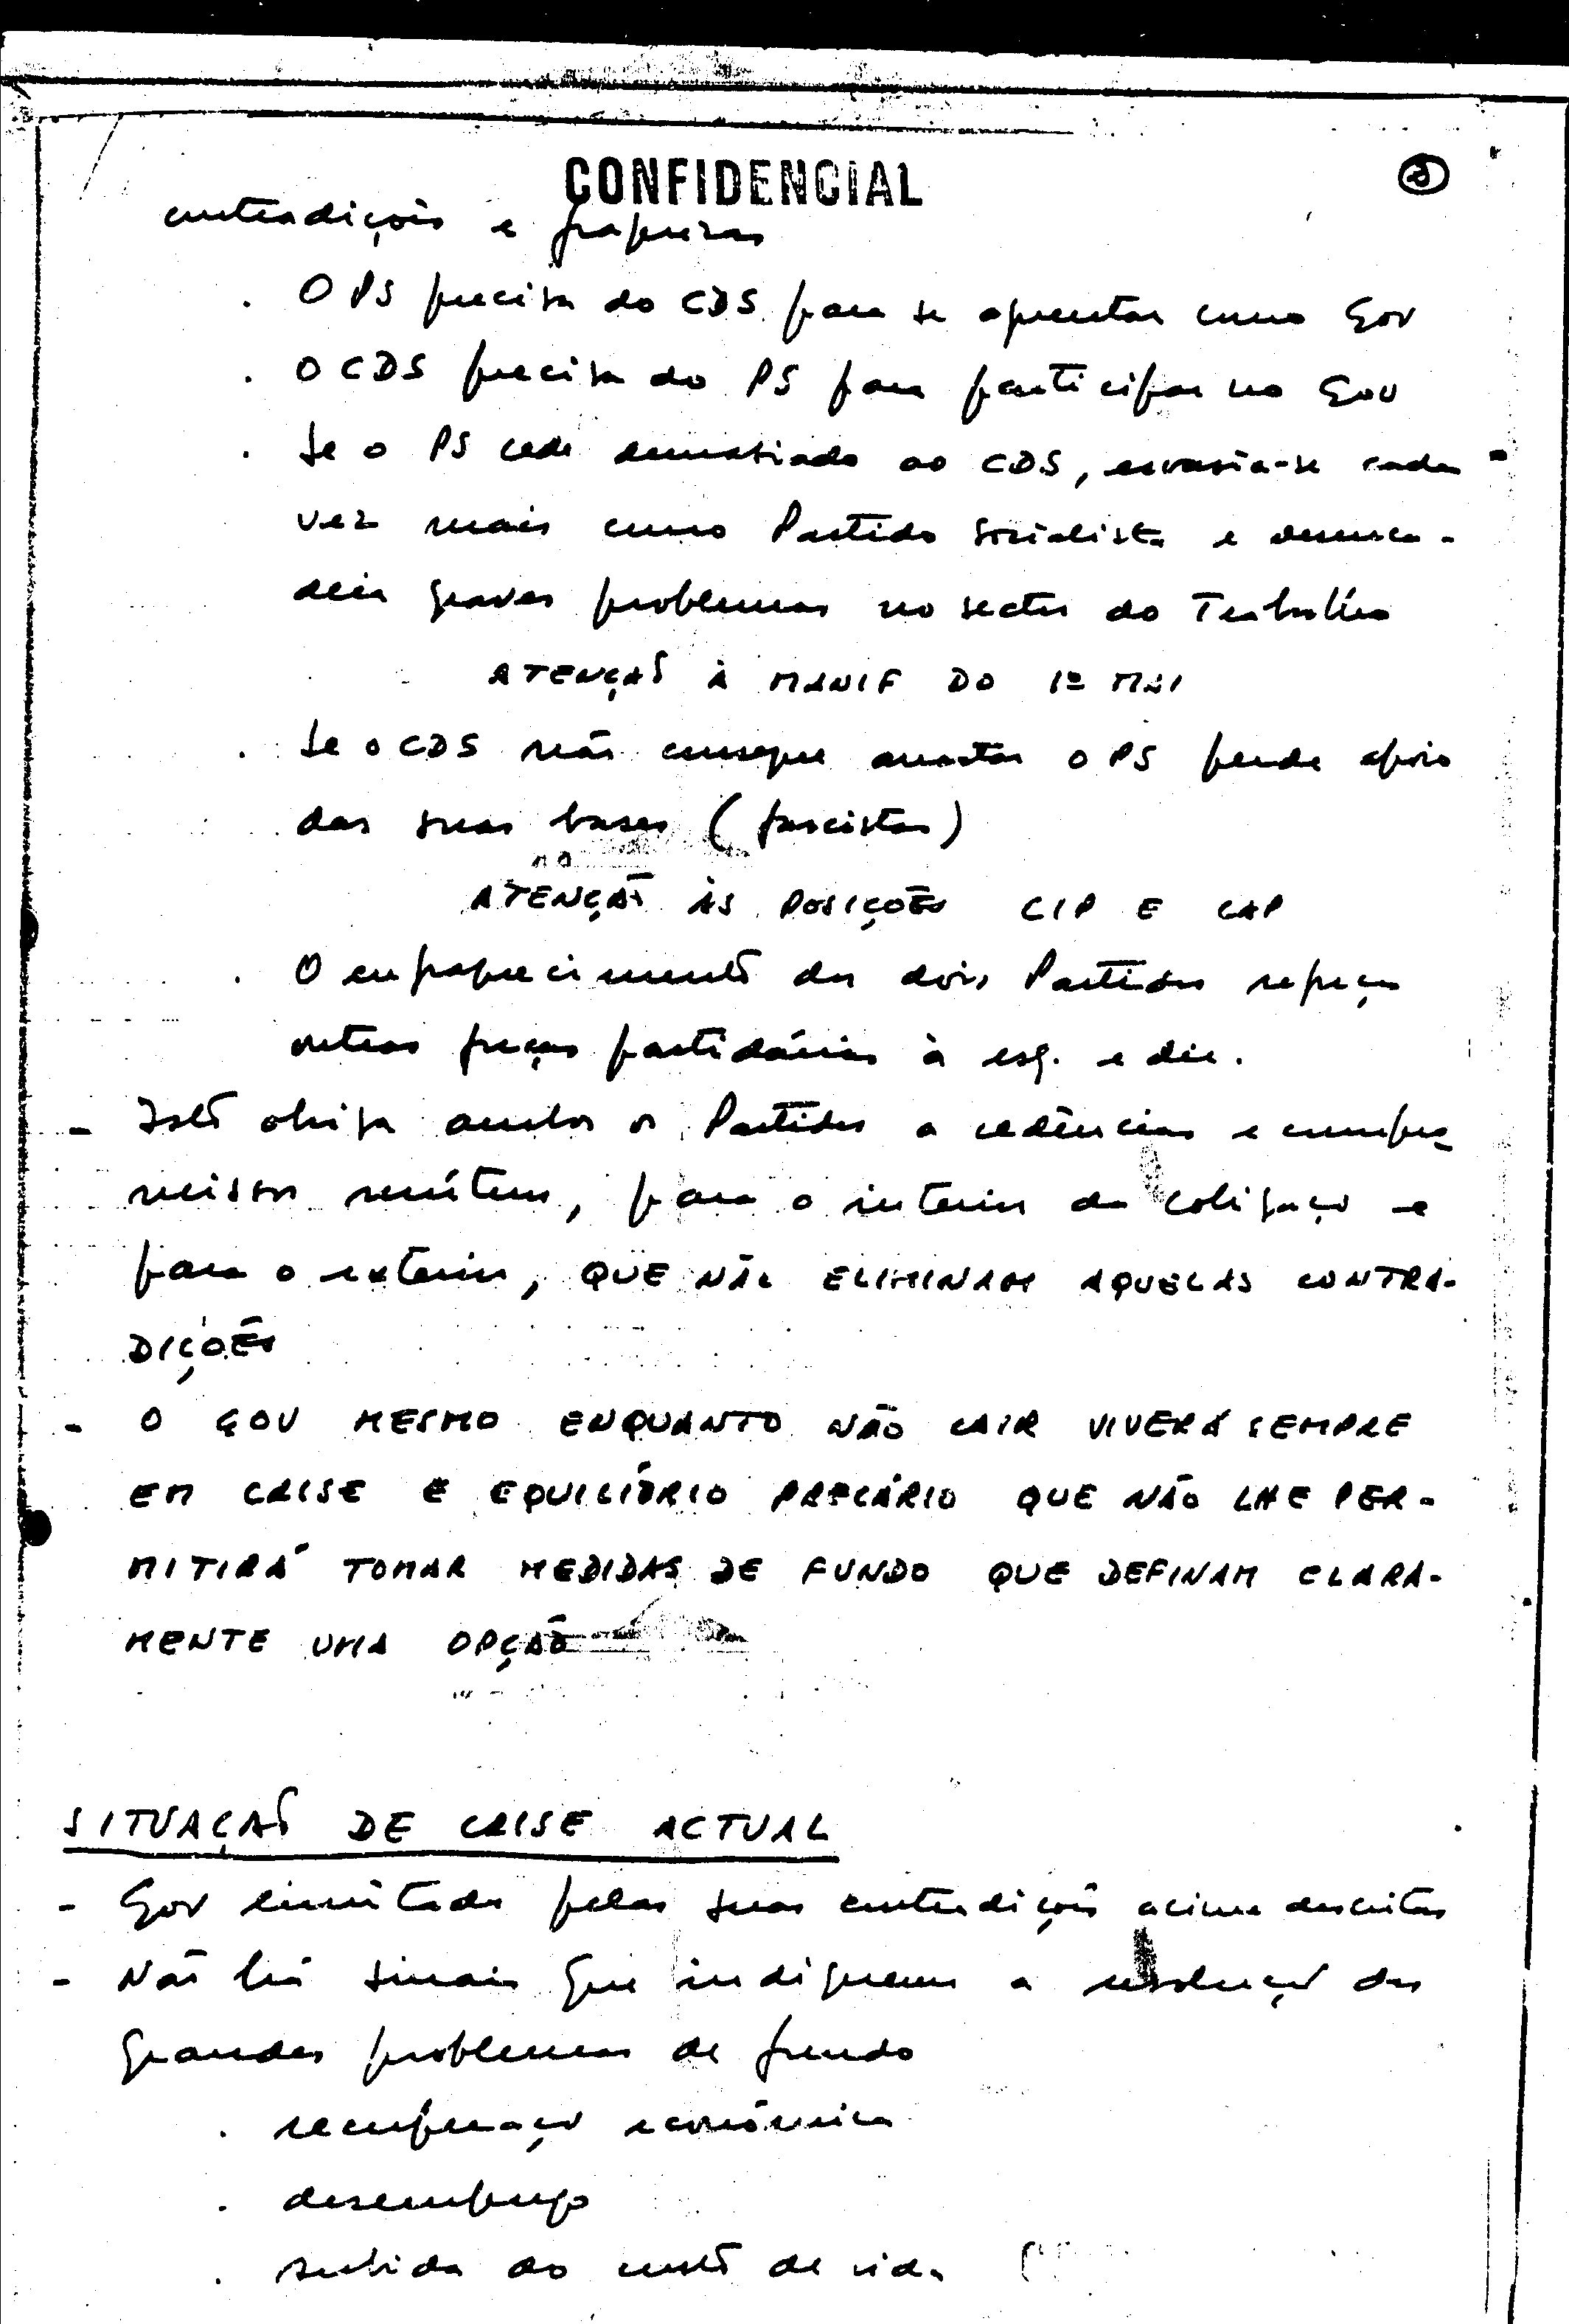 CONFIDENCIAL
contradições e fraquezas
. O PS precisa do CDS para se apresentar como Gov
. O CDS precisa do PS para participar no Gov
. Se o PS cede demasiado ao CDS, esvasia-se cada
vez mais como Partido Socialista e desenca-
deia graves problemas no sector do Trabalho
ATENÇÃO À MANIF DO 1º MAI
. Se o CDS não consegue arrastar o PS perde apoio
das suas bases (fascistas)
ATENÇÃO ÀS POSIÇÕES CIP E CAP
. O enfraquecimento dos dois Partidos reforça
outras forças partidárias à esq. e dir.
- Isto obriga ambos os Partidos a cedências e compro-
missos mútuos, para o interior da coligação e
para o exterior, QUE NÃO ELIMINAM AQUELAS CONTRA-
DIÇÕES
- O GOV MESMO ENQUANTO NÃO CAIR VIVERÁ SEMPRE
EM CRISE E EQUILÍBRIO PRECÁRIO QUE NÃO LHE PER-
MITIRÁ TOMAR MEDIDAS DE FUNDO QUE DEFINAM CLARA-
MENTE UMA OPÇÃO
SITUAÇÃO DE CRISE ACTUAL
- Gov limitado pelas suas contradições acima descritas
- Não há sinais que indiquem a resolução dos
grandes problemas de fundo
. recuperação económica
. desemprego
. subida do custo de vida